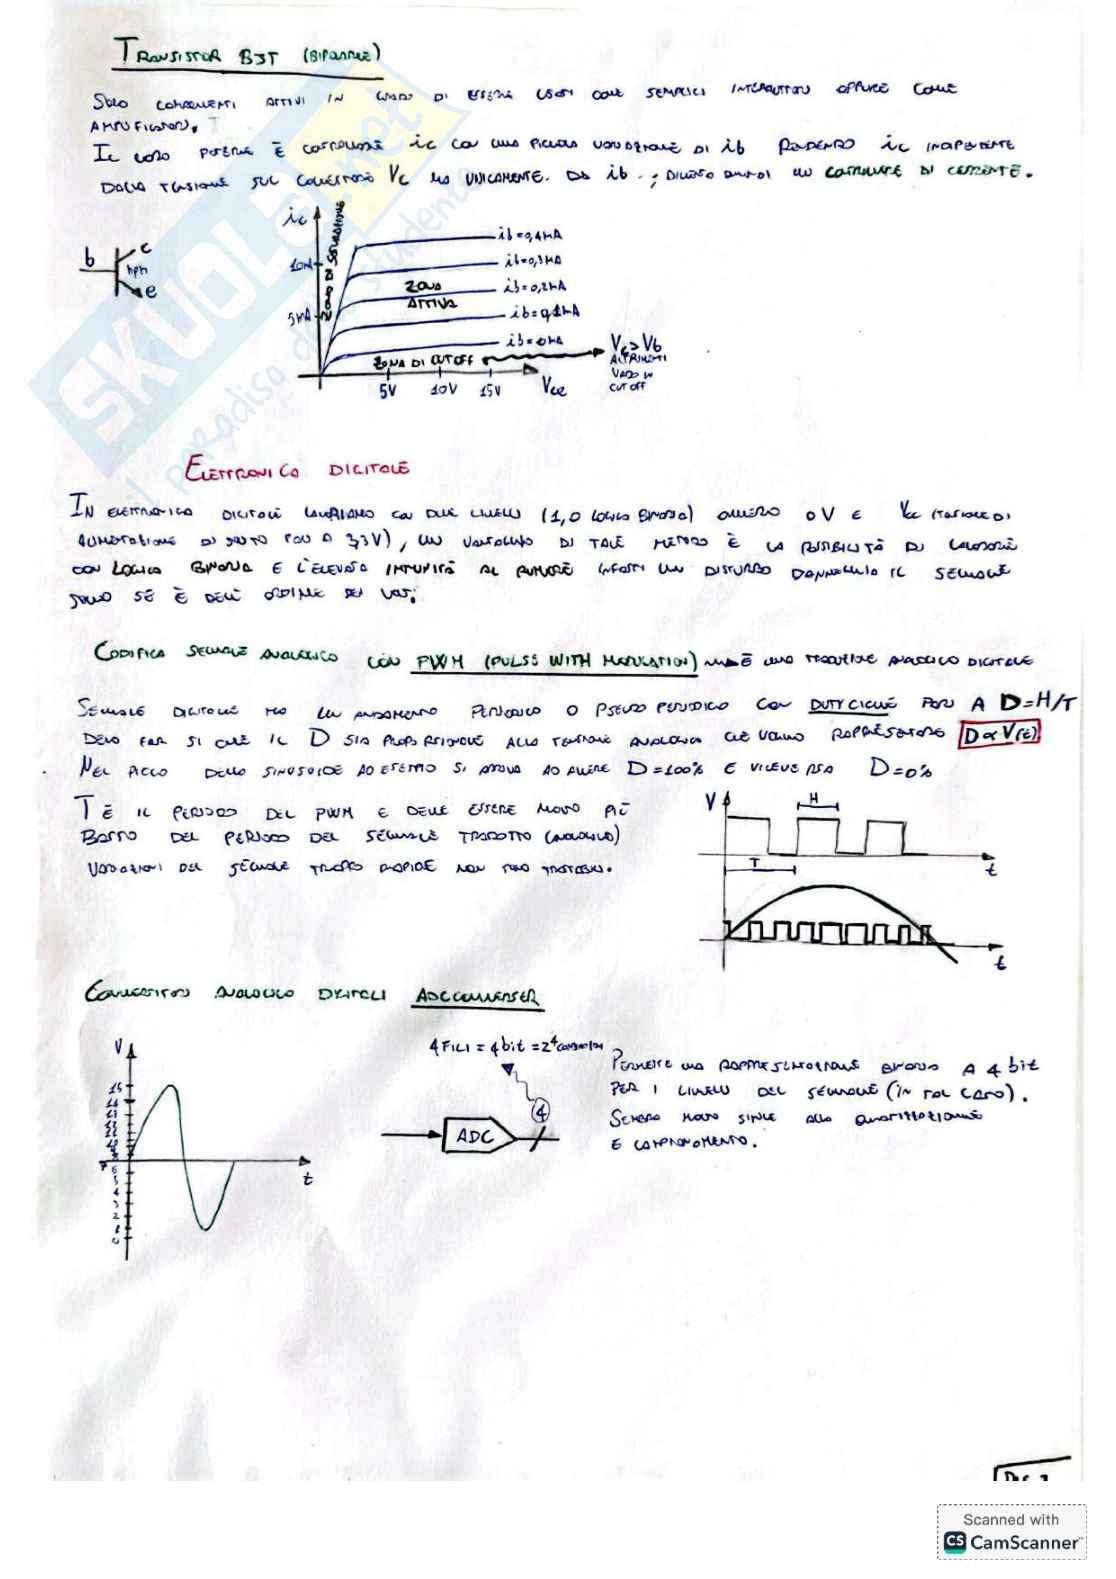 TRANSISTOR BJT (BIPOLARE)
SONO COMPONENTI ATTIVI IN GRADO DI ESSERE USATI COME SEMPLICI INTERRUTTORI OPPURE COME
AMPLIFICATORI.
IL LORO POTERE È CONTROLLARE ic CON UNA PICCOLA VARIAZIONE DI ib RENDENDO ic INDIPENDENTE
DALLA TENSIONE SUL COLLETTORE Vc MA UNICAMENTE DA ib, DICIAMO QUINDI UN CONTROLLORE DI CORRENTE.
b
c
npn
e
ic
10mA
5mA
ZONA DI SATURAZIONE
ib=0,4mA
ib=0,3mA
ib=0,2mA
ib=0,1mA
ib=0mA
ZONA
ATTIVA
ZONA DI CUTOFF
5V 10V 15V Vce
Vc>Vb
ALTRIMENTI
VADO IN
CUTOFF
ELETTRONICA DIGITALE
IN ELETTRONICA DIGITALE LAVORIAMO CON DUE LIVELLI (1,0 LOGICA BINARIA) OVVERO 0V E Vcc (TENSIONE DI
ALIMENTAZIONE DI SOLITO PARI A 3,3V), UN VANTAGGIO DI TALE METODO È LA POSSIBILITÀ DI LAVORARE
CON LOGICA BINARIA E L'ELEVATA IMMUNITÀ AL RUMORE INFATTI UN DISTURBO DANNEGGIA IL SEGNALE
SOLO SE È DELL' ORDINE DEI VOLT.
CODIFICA SEGNALE ANALOGICO CON PWM (PULSE WITH MODULATION) È UNA TRADUZIONE ANALOGICO DIGITALE
SEGNALE DIGITALE HA UN ANDAMENTO PERIODICO O PSEUDO PERIODICO CON DUTY CICLE PARI A D=H/T
DEVO FAR SI CHE IL D SIA PROPORZIONALE ALLA TENSIONE ANALOGICA CHE VOGLIO RAPPRESENTARE D∝V(t)
NEL PICCO DELLA SINUSOIDE AD ESEMPIO SI ARRIVA AD AVERE D=100% E VICEVERSA D=0%
T È IL PERIODO DEL PWM E DEVE ESSERE MOLTO PIÙ
BASSO DEL PERIODO DEL SEGNALE TRADOTTO (ANALOGICO)
VARIAZIONI DEL SEGNALE TROPPO RAPIDE NON SONO TRATTABILI.
V
H
T
t
t
CONVERTITORI ANALOGICO DIGITALI ADC CONVERSER
V
15
14
13
12
11
10
9
8
7
6
5
4
3
2
1
0
t
4 FILI = 4bit = 2⁴
4
ADC
PERMETTE UNA RAPPRESENTAZIONE BINARIA A 4 bit
PER I LIVELLI DEL SEGNALE (IN TAL CASO).
SEMBRA MOLTO SIMILE ALLA QUANTIZZAZIONE
E CAMPIONAMENTO.
SKUOLA.net
il paradiso dello studente
Scanned with
CS CamScanner